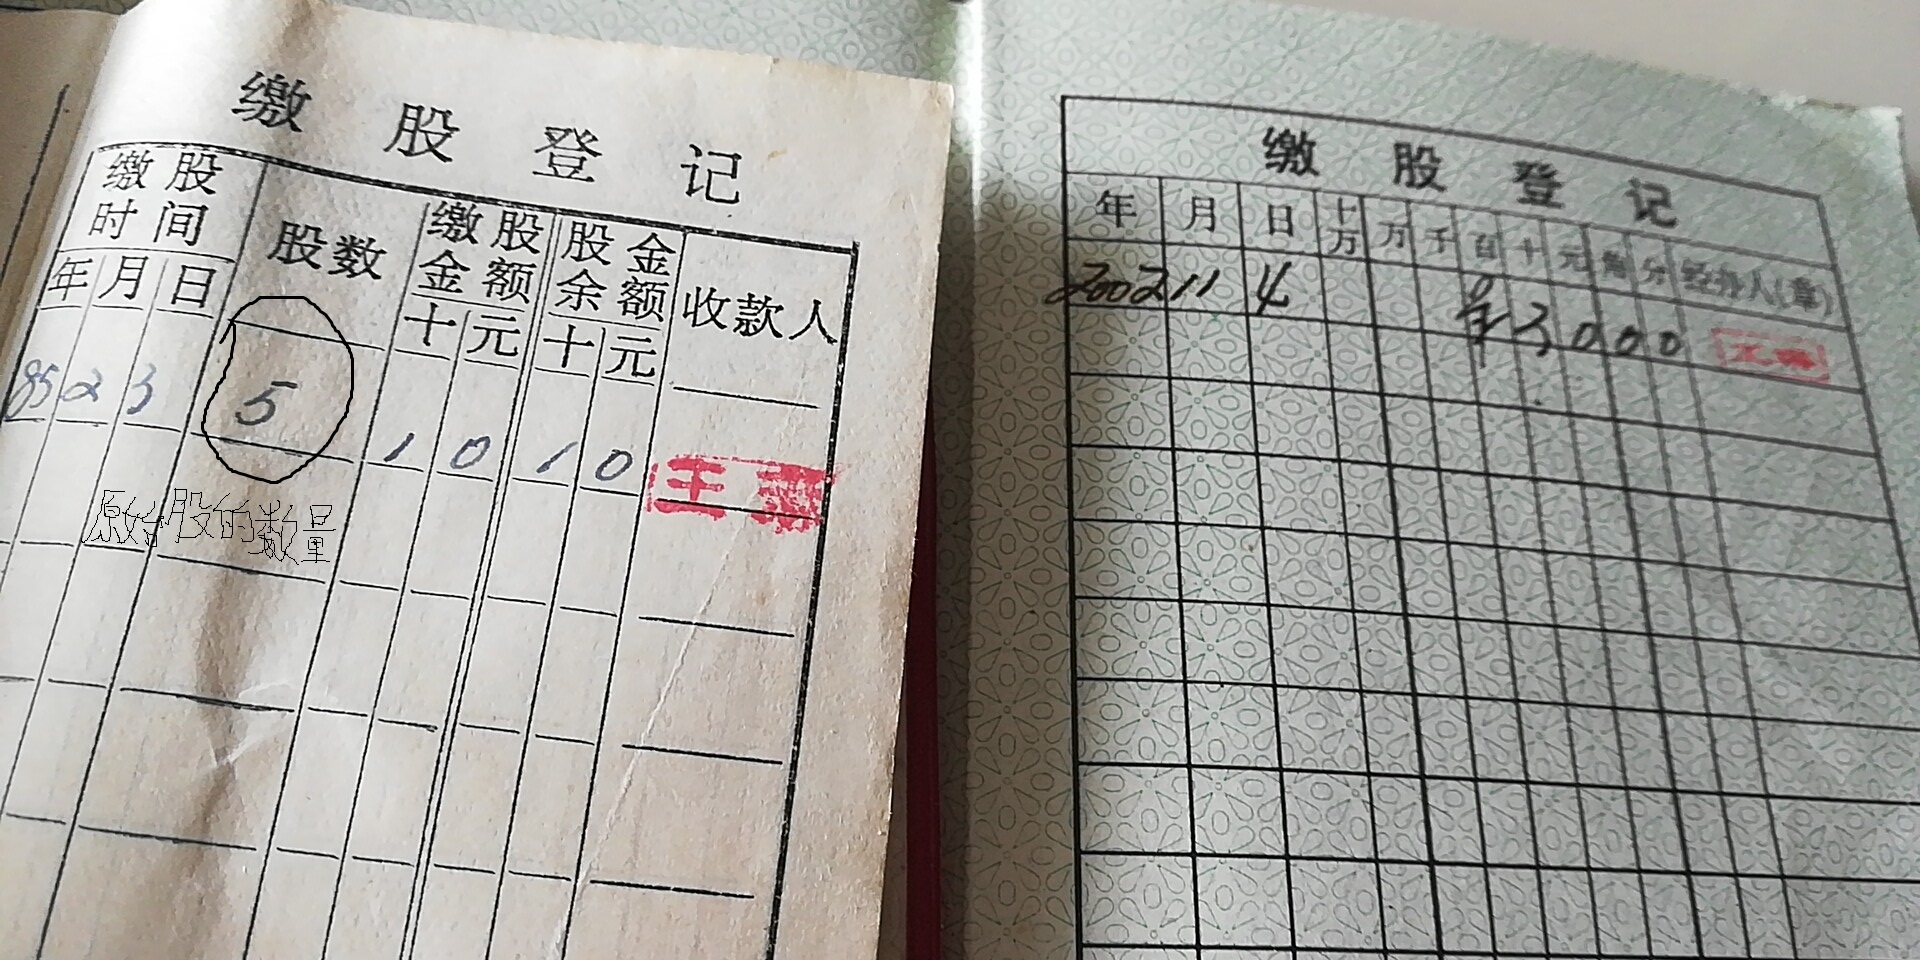 缴股登记
缴股时间 股数 缴股金额 股金余额 收款人
年 月 日 十 元 十 元
85 2 3 5 1 0 1 0
原始股的数量
缴股登记
年 月 日 十万 万 千 百 十 元 角 分 经办人(章)
2002 11 4 ¥ 3 0 0 0